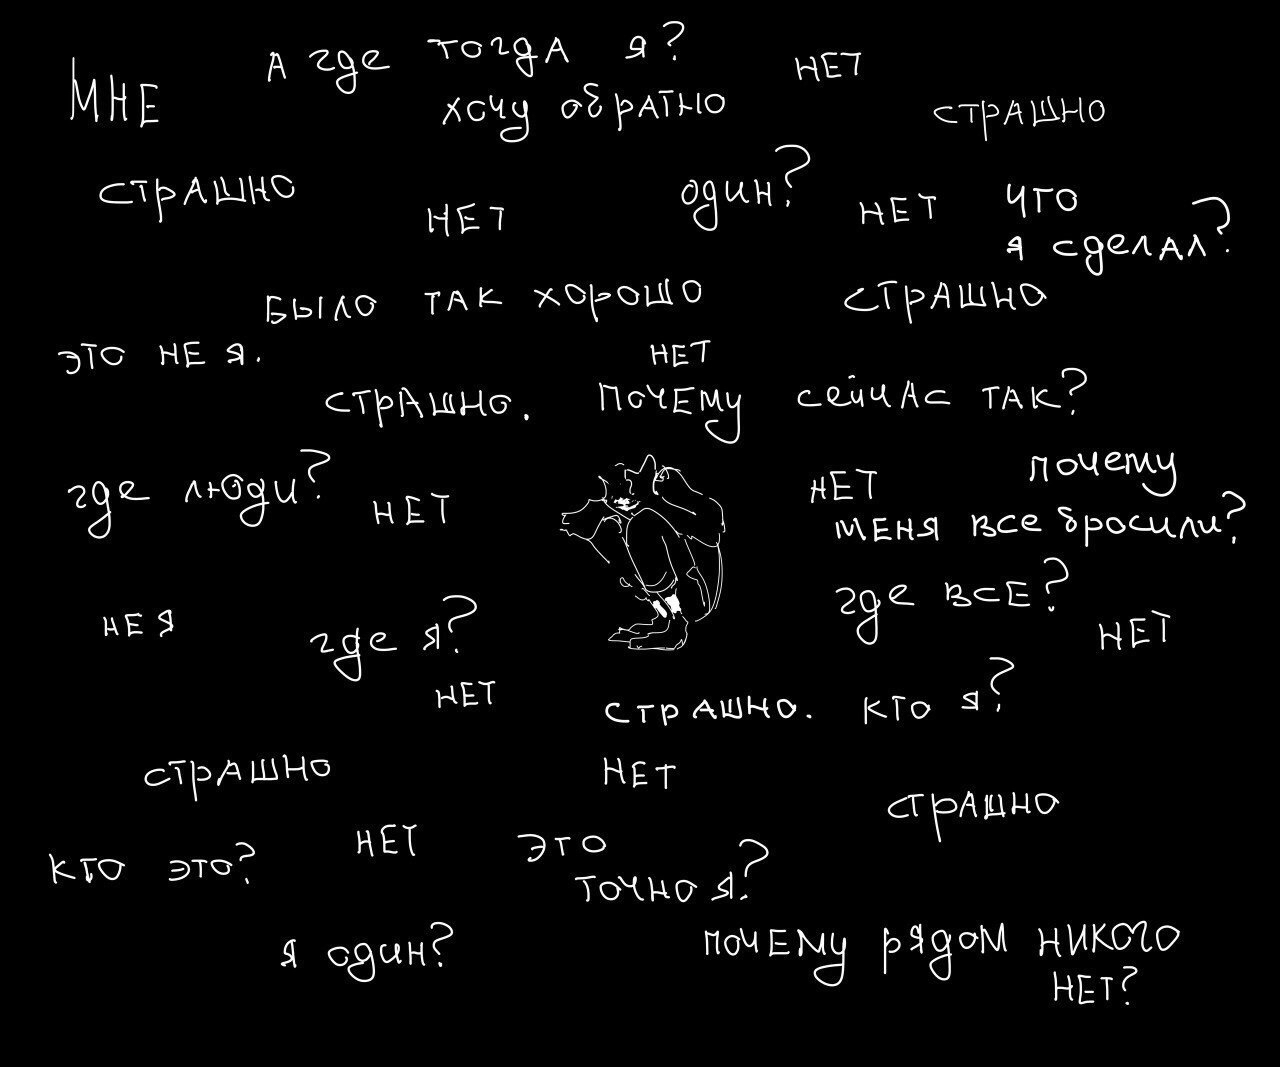 А где тогда я?
МНЕ
НЕТ
хочу обратно
СТРАШНО
СТРАШНО
один?
НЕТ
НЕТ
что
я сделал?
было так хорошо
СТРАШНО
ЭТО НЕ Я.
НЕТ
СТРАШНО.
ПОЧЕМУ сейчас так?
где люди?
НЕТ
НЕТ
почему
меня все бросили?
где все?
НЕ Я
где я?
НЕТ
НЕТ
СТРАШНО. кто я?
СТРАШНО
НЕТ
СТРАШНО
кто это?
НЕТ
ЭТО
точно я?
я один?
почему рядом никого
нет?